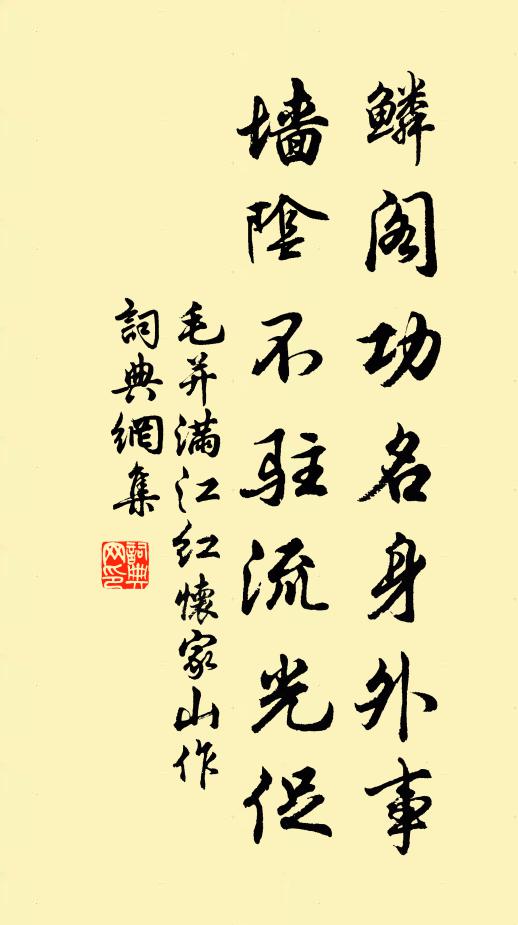 鱗阁功名身外事
墙陰不駐流光促
毛并满江紅懷家山作
詞典網集
詞典网印